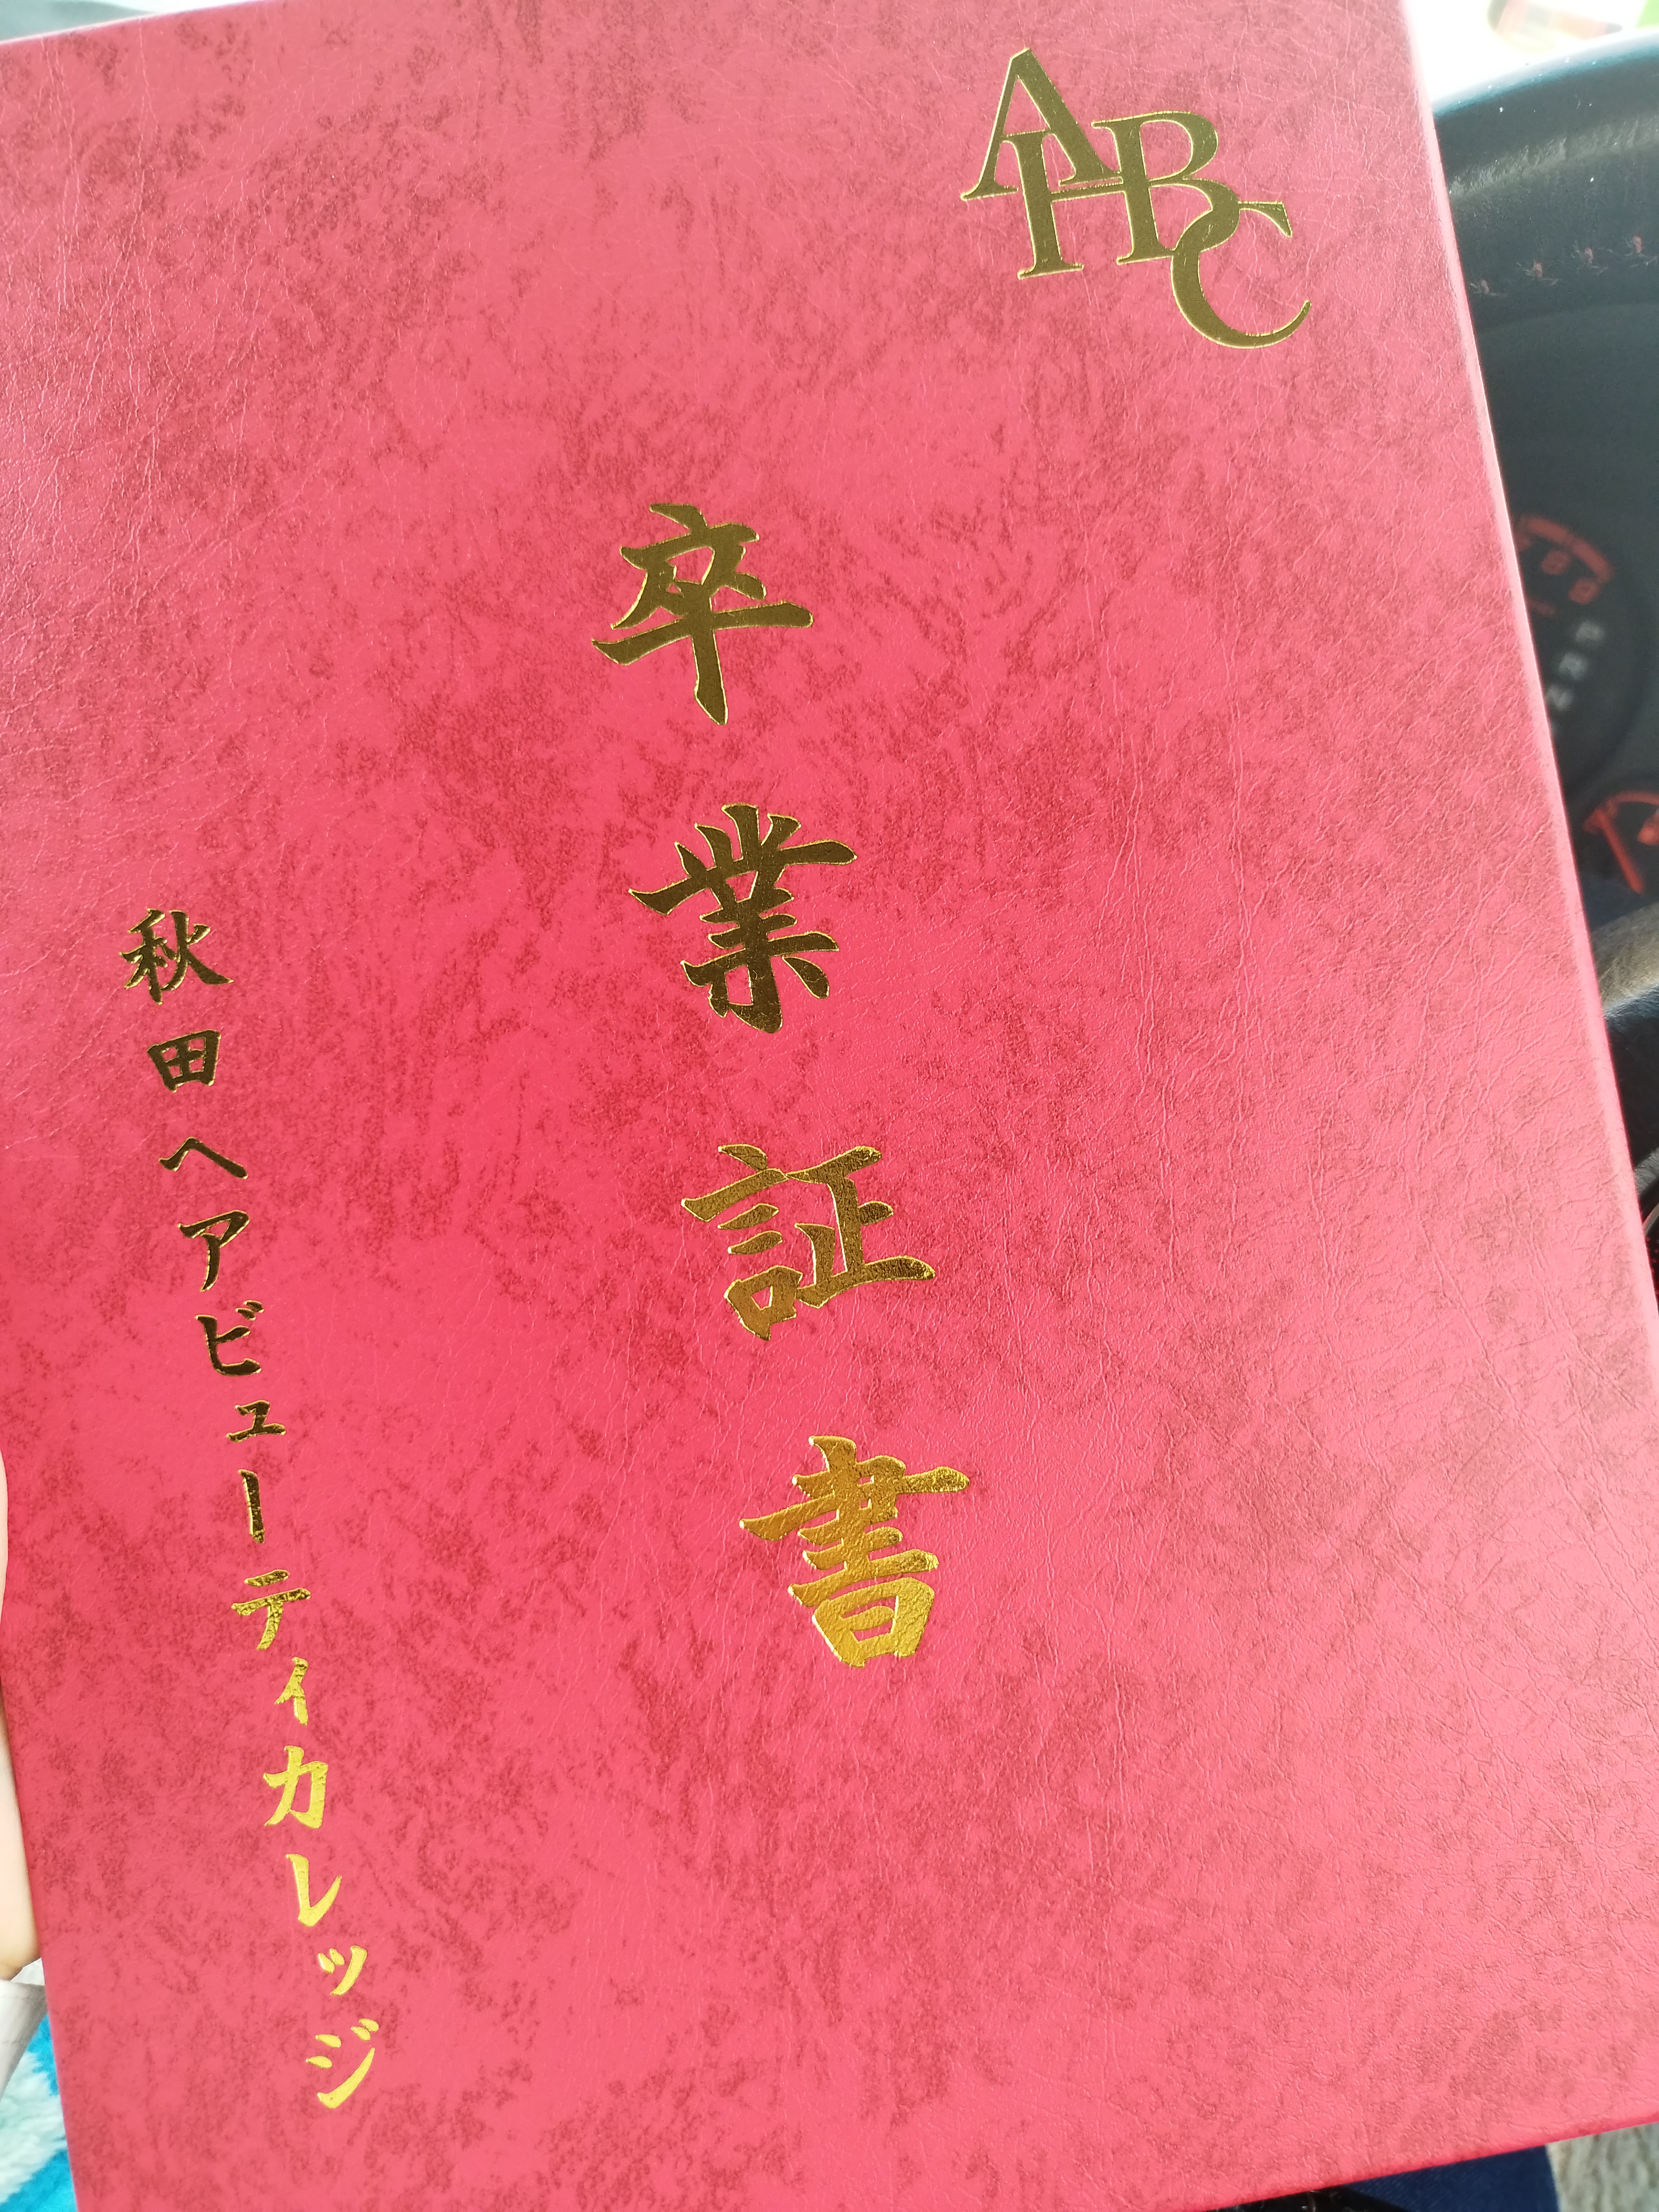 AHBC
卒業証書
秋田ヘアビューティカレッジ